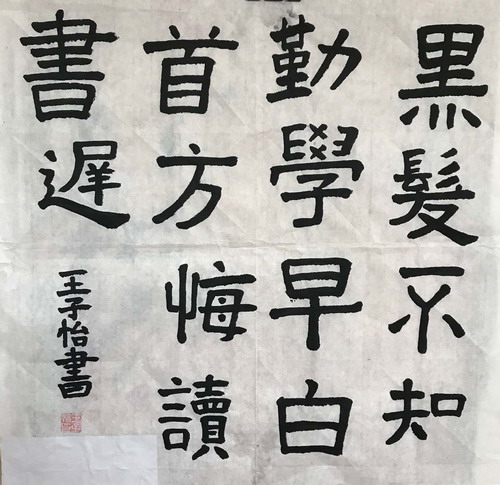 黑髮不知
勤學早白
首方悔讀
書遲
王子怡書